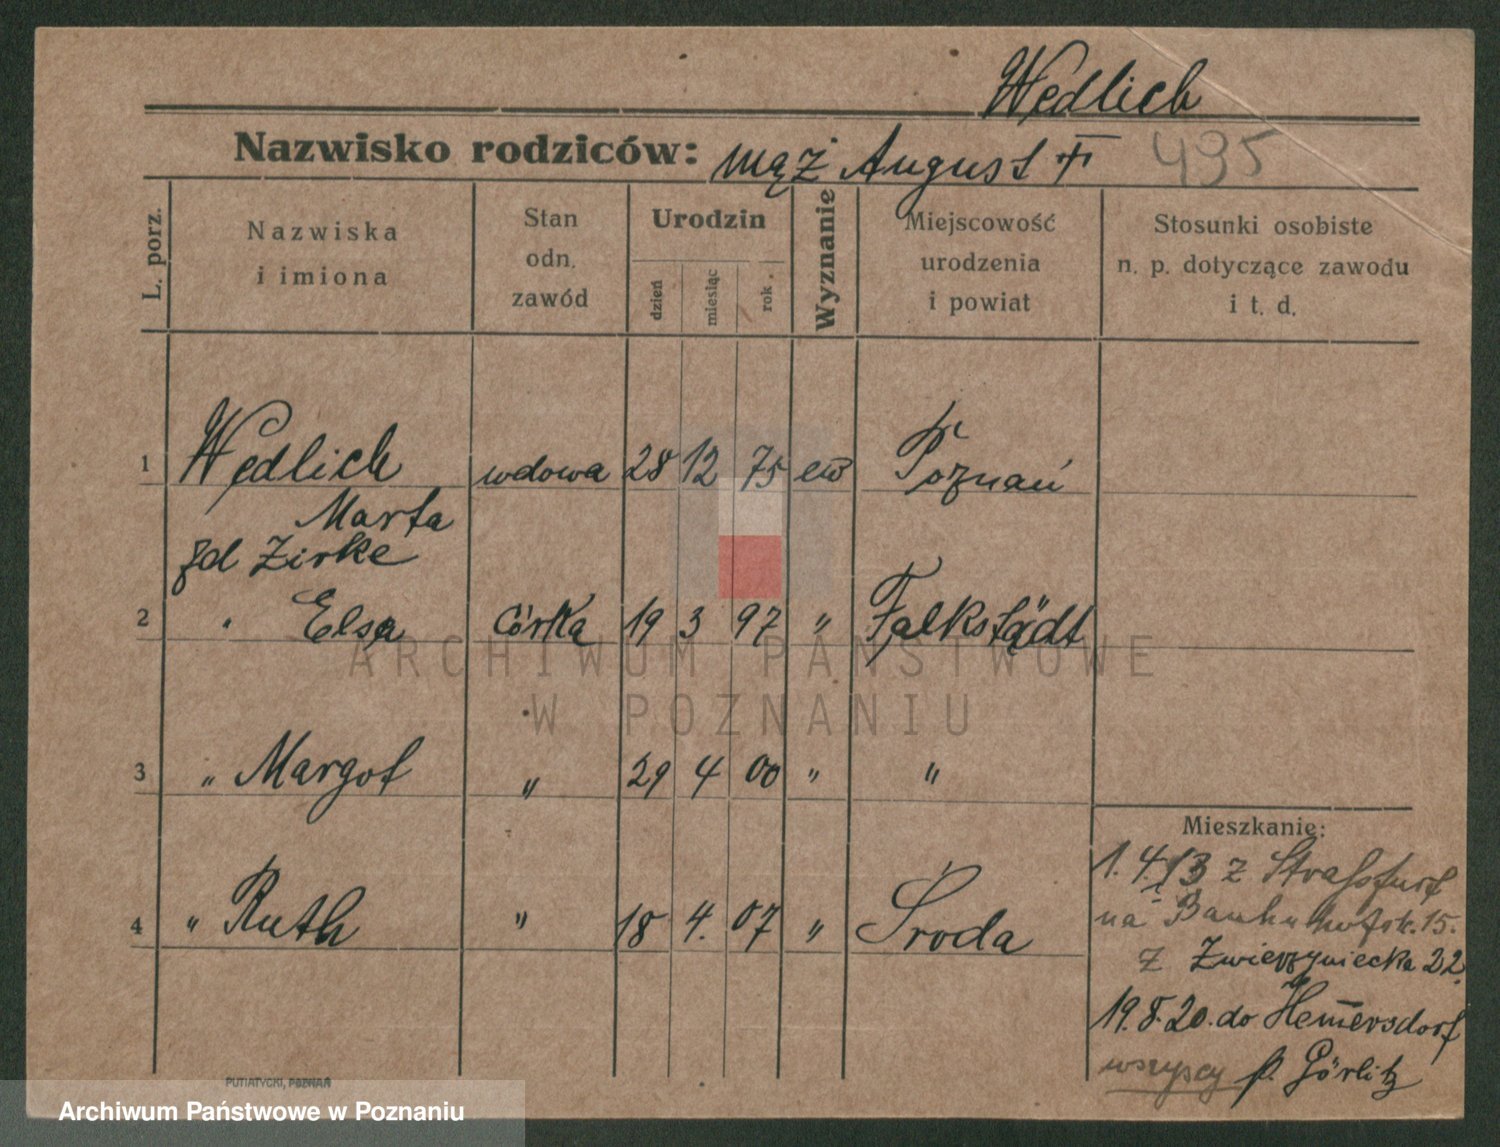 Wędlich
Nazwisko rodziców: mąż August + 495
L. porz.
Nazwiska i imiona
Stan odn. zawód
Urodzin
dzień
miesiąc
rok
Wyznanie
Miejscowość urodzenia i powiat
Stosunki osobiste n. p. dotyczące zawodu i t. d.
1 Wędlich wdowa 28 12 75 ew Poznań
Marta
zd Zirke
2 " Elsa córka 19 3 97 " Falkstädt
3 " Margot " 29 4 00 " "
4 " Ruth " 18 4. 07 " Środa
Mieszkanie:
1.4.13 z Strassfurt
na 15.
z Zwierzyniecka 22.
19.8.20. do Hennersdorf
wszyscy p. Görlitz
PUTIATYCKI, POZNAŃ
ARCHIWUM PAŃSTWOWE
W POZNANIU
Archiwum Państwowe w Poznaniu